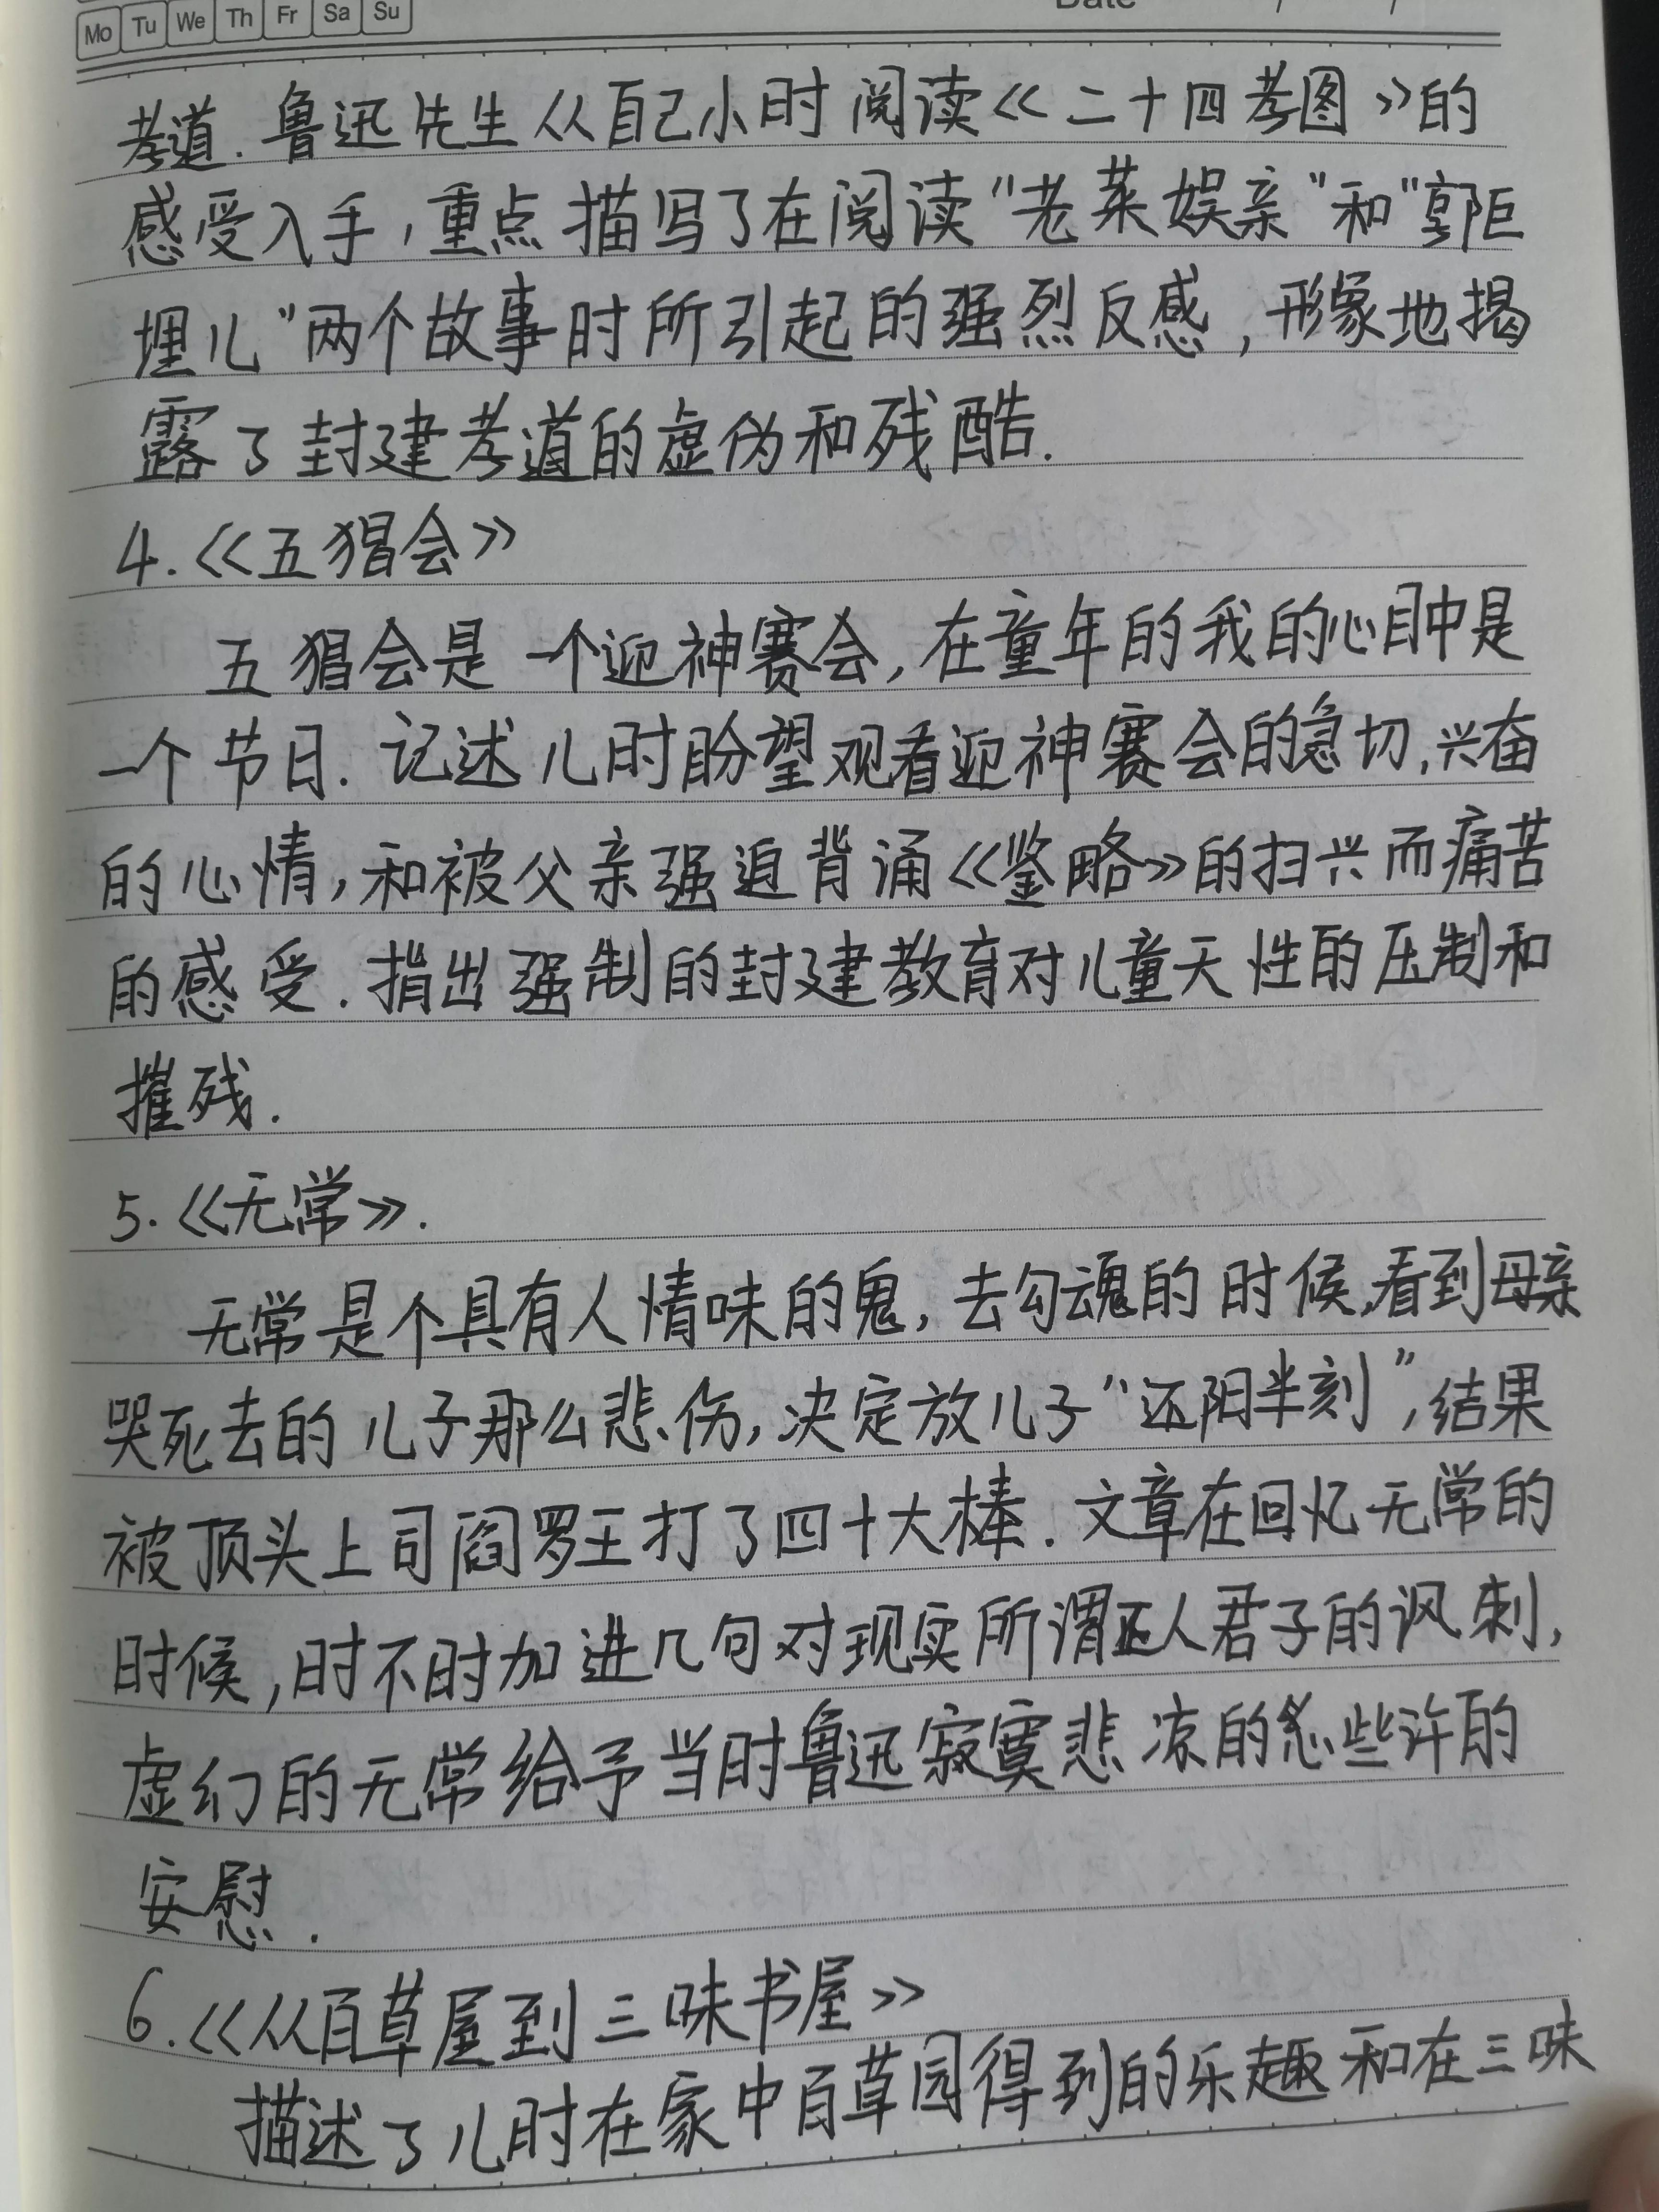 Mo Tu We Th Fr Sa Su
Date / /
孝道.鲁迅先生从自己小时阅读《二十四孝图》的
感受入手,重点描写了在阅读"老莱娱亲"和"郭巨
埋儿"两个故事时所引起的强烈反感,形象地揭
露了封建孝道的虚伪和残酷.
4.《五猖会》
五猖会是一个迎神赛会,在童年的我的心目中是
一个节日.记述儿时盼望观看迎神赛会的急切,兴奋
的心情,和被父亲强迫背诵《鉴略》的扫兴而痛苦
的感受.指出强制的封建教育对儿童天性的压制和
摧残.
5.《无常》.
无常是个具有人情味的鬼,去勾魂的时候,看到母亲
哭死去的儿子那么悲伤,决定放儿子"还阳半刻",结果
被顶头上司阎罗王打了四十大棒.文章在回忆无常的
时候,时不时加进几句对现实所谓正人君子的讽刺,
虚幻的无常给予当时鲁迅寂寞悲凉的些许的
安慰.
6.《从百草屋到三味书屋》
描述了儿时在家中百草园得到的乐趣和在三味